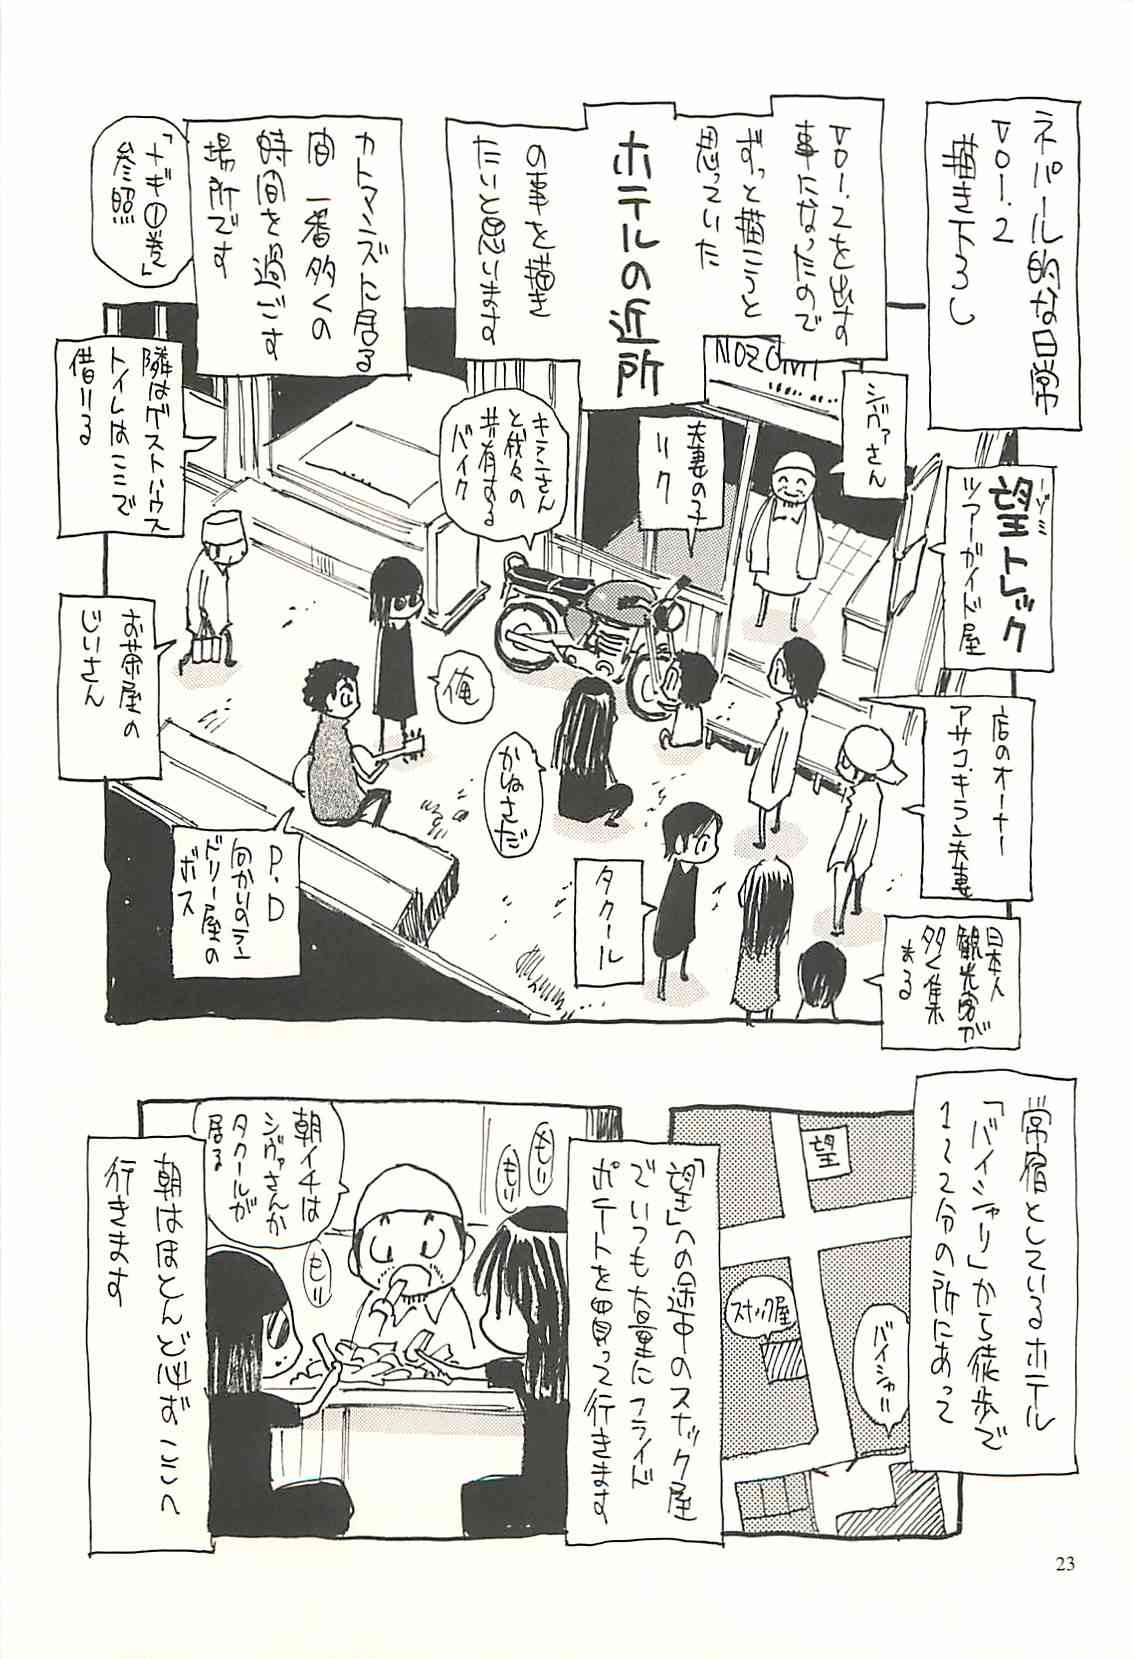 ネパール的な日常
VOl.2
描き下ろし
VOl.2を出す
事になったので
ずっと描こうと
思っていた
ホテルの近所
の事を描き
たいと思います
カトマンズに居る
間 一番多くの
時間を過ごす
場所です
「ナギ①巻」
参照
ノゾミ
望トレック
ツアーガイド屋
NOZOMI
シヴァさん
夫妻の子
リク
キランさん
と我々の
共有する
バイク
隣はゲストハウス
トイレはここで
借りる
お茶屋の
じいさん
俺
かねさだ
店のオーナー
アサコ、キラン夫妻
P.D
向かいのラン
ドリー屋の
ボス
タクール
日本人
観光客が
多く集
まる
常宿としているホテル
「バイシャリ」から徒歩で
1〜2分の所にあって
望
スナック屋
バイシャリ
「望」への途中のスナック屋
でいつも大量にフライド
ポテトを買って行きます
もい
もい
もい
朝イチは
シヴァさんか
タクールが
居る
朝はほとんど必ずここへ
行きます
23